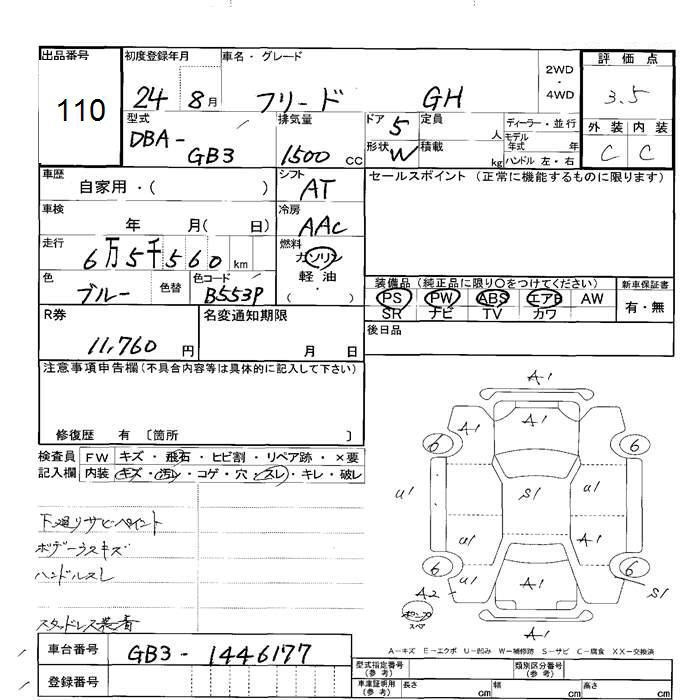 出品番号
110
初度登録年月
24 8月
車名・グレード
フリード GH
2WD
・
4WD
評価点
3.5
外装 内装
C C
型式
DBA-
GB3
排気量
1500 cc
ドア 5
形状 W
定員 人
積載 kg
ディーラー・並行
モデル
年式 年
ハンドル 左・右
車歴
自家用・( )
シフト
AT
セールスポイント (正常に機能するものに限ります)
車検
年 月( 日)
冷房
AAC
走行
6万5千560 km
燃料
ガソリン
軽油
・
( )
色
ブルー
色替
色コード
B553P
装備品 (純正品に限り○をつけてください)
PS PW ABS エアB AW
SR ナビ TV カワ
新車保証書
有・無
R券
11,760 円
名変通知期限
月 日
後日品
注意事項申告欄(不具合内容等は具体的に記入して下さい)
修復歴 有 〔箇所 〕
検査員
記入欄
FW キズ・飛石・ヒビ割・リペア跡・×要
内装 キズ・汚レ・コゲ・穴・スレ・キレ・破レ
下廻りサビペイント
ボデーウスキズ
ハンドルスレ
スタッドレス装着
A1
A1 A1
6 6
U1 S1 U1
U1 A1
6 6
U1 A1
A2 S1
スペア
A1
A-キズ E-エクボ U-凹み W-補修跡 S-サビ C-腐食 XX-交換済
車台番号
GB3-1446177
登録番号
型式指定番号
(参考)
類別区分番号
(参考)
車庫証明用
(参考)
長さ cm 幅 cm 高さ cm